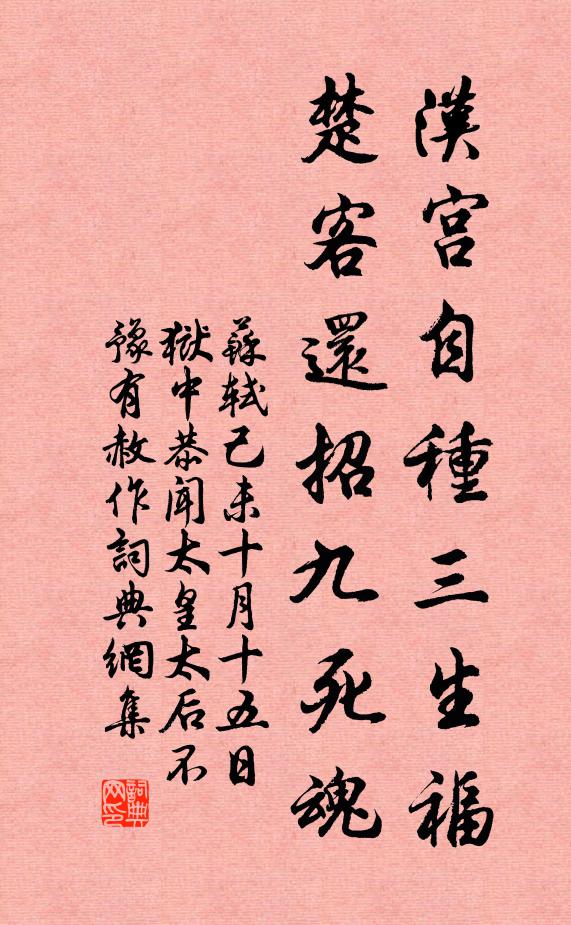 漢宮自種三生福
楚客還招九死魂
蘇軾己未十月十五日
獄中恭聞太皇太后不
豫有赦作詞典網集
詞典
网印